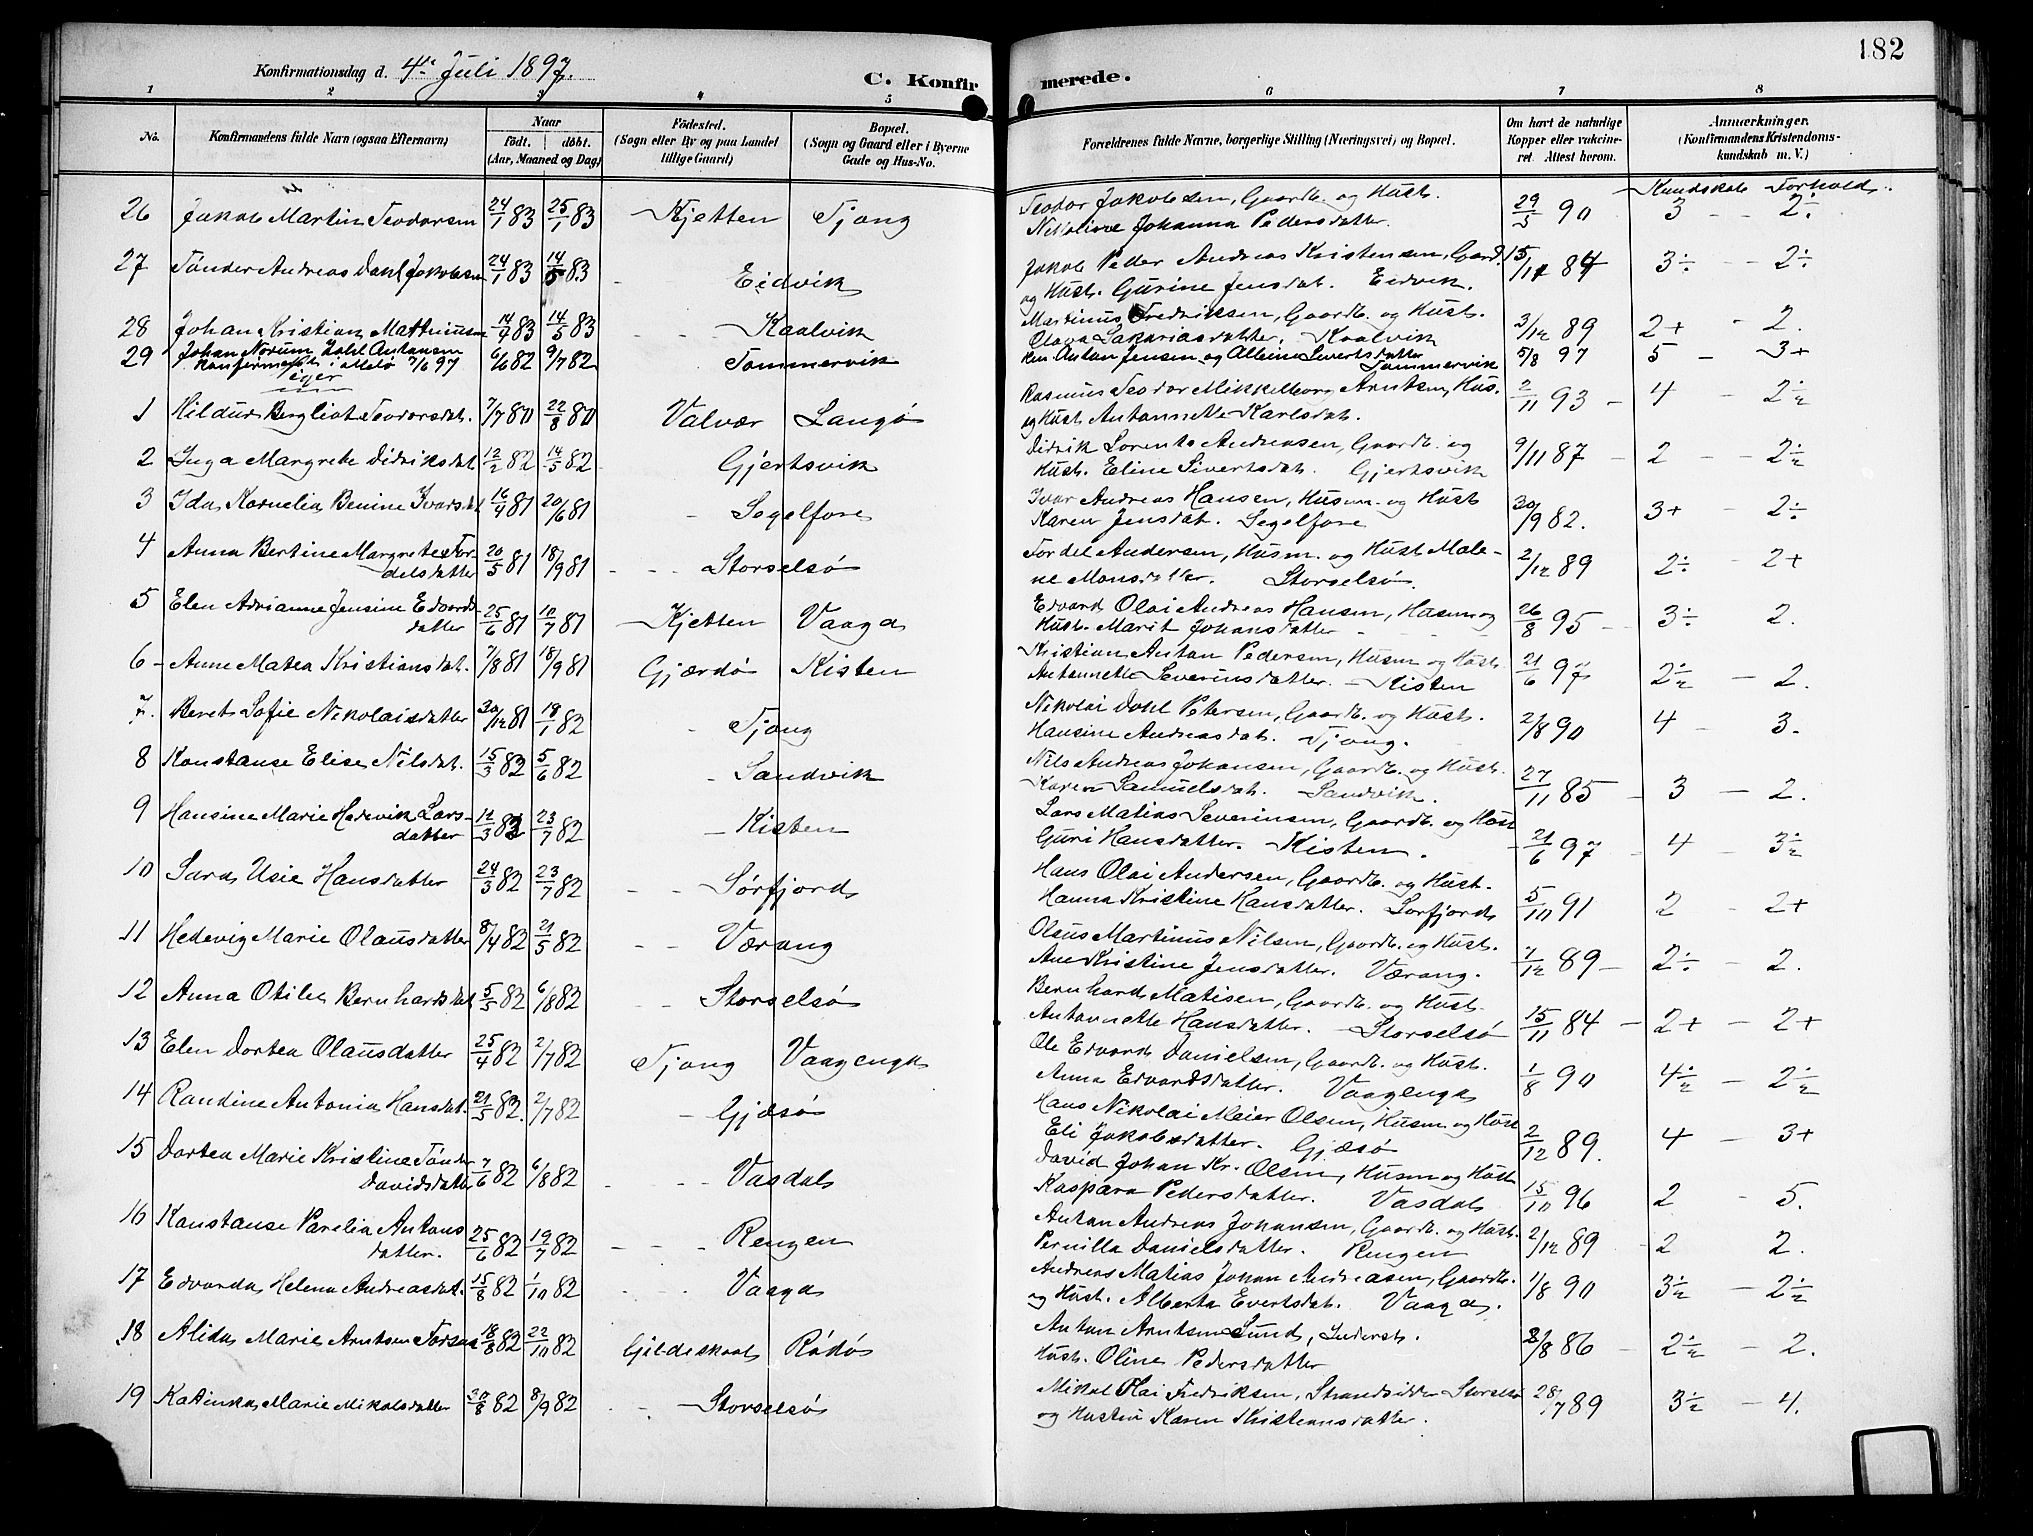 182
Konfirmationsdag d. 4de Juli 1897.
C. Konfirmerede.
1 2 3 4 5 6 7 8
No. Konfirmandens fulde Navn (ogsaa Efternavn) Naar födt. döbt. (Aar, Maaned og Dag) Födested. (Sogn eller By og paa Landet tillige Gaard) Bopæl. (Sogn og Gaard eller i Byerne Gade og Hus-No. Forældrenes fulde Navne, borgerlige Stilling (Næringsvei) og Bopæl. Om havt de naturlige Kopper eller vakcineret. Attest herom. Anmærkninger. (Konfirmandens Kristendomskundskab m. V.)
Kundskab Forhold
26 Jakob Martin Teodorsen 24/1 83 25/1 83 Kjetten Tjong Teodor Jakobsen, Gaardb. og Hust. Nikoline Johanna Pedersdatter. 29/5 90 3 - 2÷
27 Tönder Andreas Dahl Jakobsen 24/1 83 14/5 83 - Eidvik Jakob Peder Andreas Kristensen, Gaard. og Hust. Gurine Jensdat. Eidvik. 15/11 84 3÷ - 2÷
28 Johan Kristian Martinusen 14/4 83 14/5 83 - Kaalvik Martinus Fredriksen, Gaardb. og Hust. Olava Sakariasdatter. Kaalvik 3/12 89 2+ - 2.
29 Johan Norum Dahl Antonsen 6/6 82 9/7 82 Tommervik Anton Jensen og Albine Sivertsdatter Tommervik 5/8 97 5 - 3+
konfirmeret i
Piger
1 Hildur Bergliot Teodorsdat. 7/7 80 22/8 80 Valvær Langö Rasmus Teodor Mikkelborg Arntsen, Hus. og Hust. Antonnette Karlsdat. 2/11 93 - 4 - 2½
2 Inga Margrete Didriksdat 12/2 82 14/5 82 - Gjertsvik Didrik Lorents Andreasen, Gaardb. og Hust. Eline Sivertsdat. Gjertsvik 9/11 87 - 2 - 2½
3 Ida Kornelia Benine Ivarsdat 16/4 81 20/6 81 - Segelfore Ivar Andreas Hansen, Husm. og Hust Karen Jensdat. Segelfore 30/9 82. 3+ - 2÷
4 Anna Bertine Margrete Tordelsdatter 20/5 81 18/9 81 - - Storselsö Tordel Andersen, Husm. og Hust Malene Monsdatter. Storselsö. 2/12 89 2÷ - 2+
5 Elen Adrianne Jensine Edvardsdatter 25/6 81 10/7 81 Kjetten Vaaga Edvard Olai Andreas Hansen, Husm og Hust. Marit Johansdatter 26/8 95 - 3÷ 2.
6 - Anne Matea Kristiansdat. 7/8 81 18/9 81 Gjærdö Kisten Kristian Anton Pedersen, Husm og Hust. Antonnette Severinsdatter. Kisten 21/6 97 2½ - 2.
7. Beret Sofie Nikolaisdatter 30/12 81 18/1 82 - Tjong Nikolai Dahl Petersen, Gaardb. og Hust. Hansine Andreasdat. Tjong. 2/8 90 4 - 3.
8 Konstanse Elise Nilsdat. 15/3 82 5/6 82 - Sandvik Nils Andreas Johansen, Gaardb. og Hust. Karen Samuelsdat. Sandvik. 27/11 85 - 3 - 2.
9 Hansine Marie Hedevik Larsdatter 12/3 82 23/7 82 - Kisten Lars Matias Severinsen, Gaardb. og Hust Guri Hansdatter. Kisten. 21/6 97 - 4 - 3½
10 Sara Usie Hansdatter 24/3 82 23/7 82 - - Sörfjord Hans Olai Andersen, Gaardb. og Hust. Hanna Kristine Hansdatter. Sörfjord 5/10 91 2 - 2+
11 Hedevig Marie Olausdatter 8/4 82 21/5 82 - - Værang Olaus Martinus Nilsen, Gaardb. og Hust. Ane Kristine Jensdatter. Værang. 7/12 89 - 2÷ - 2.
12 Anna Otilie Bernhardsdat 5/5 82 6/8 82 - - Storselsö Bernhard Matisen, Gaardb. og Hust. Antonnette Hansdatter. Storselsö 15/11 84 - 2+ - 2+
13 Elen Dortea Olausdatter 25/4 82 2/7 82 Tjong Vaagengk Ole Edvard Danielsen, Gaardb. og Hust. Anna Edvardsdatter. Vaagengk 1/8 90 4½ - 2½
14 Randine Antonia Hansdat. 21/5 82. 2/7 82 - Gjæsö Hans Nikolai Meier Olsen, Husm og Hust Eli Jakobsdatter. Gjæsö 2/12 89. 4 - 3+
15 Dortea Marie Kristine Tönder Davidsdatter 7/6 82 6/8 82 - - - Vasdal David Johan Kr. Olsen, Husm og Hust Kaspara Pedersdatter. Vasdal 15/10 96 2 - 5.
16 Konstanse Parelia Antonsdatter. 25/6 82 19/7 82 - - - Rengen Anton Andreas Johansen, Gaardb. og Hust. Pernilla Danielsdatter. Rengen 2/12 89 - 2 2.
17 Edvarda Helena Andreasdat. 15/8 82 1/10 82 - - - Vaaga Andreas Matias Johan Andreasen, Gaardb. og Hust. Alberta Evertsdat. Vaaga. 1/8 90 3½ - 2½
18 Alida Marie Arntsen 18/8 82 22/10 82 Gildeskaal Rödö Anton Arntsen Lund, Inderst. Hust. Oline Pedersdatter 2/8 86 - 2½ - 2.
19 Katinka Marie Mikalsdatter 30/8 82 8/9 82 - - Storselsö Mikal Olai Fredriksen, Strandsidder Storselsö og Hustru Karen Kristensdatter. 28/7 89 3½ - 4.